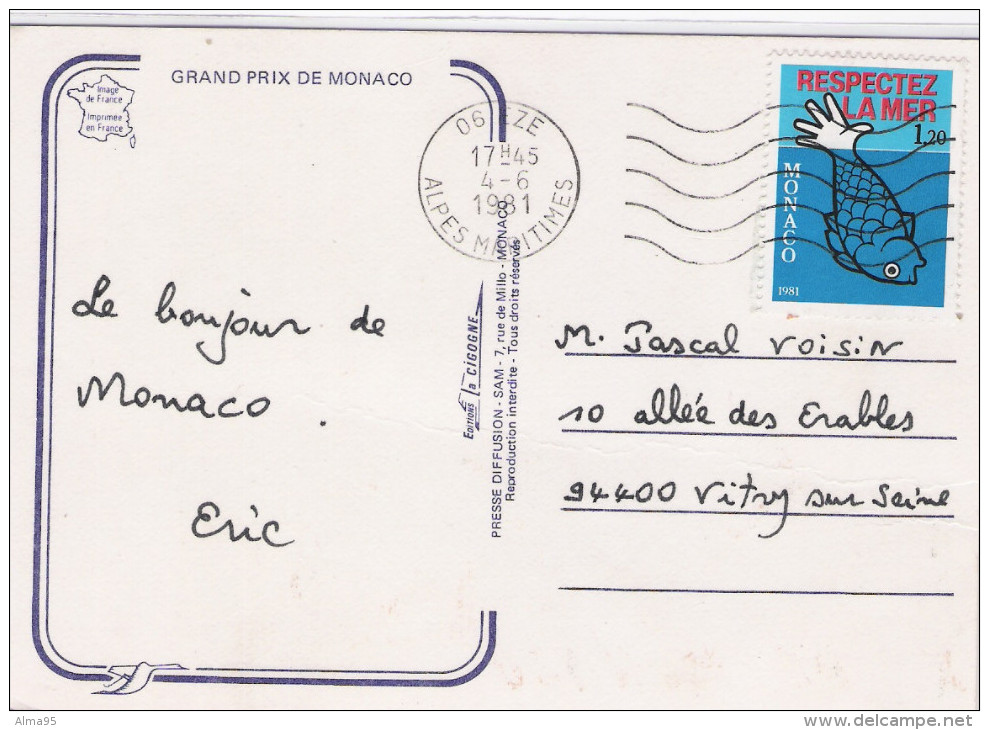 GRAND PRIX DE MONACO
Image
de France
Imprimée
en France
Le bonjour de
Monaco.
Eric
06 EZE
17H45
4-6
1981
ALPES MARITIMES
RESPECTEZ
LA MER
1,20
MONACO
1981
Editions la CIGOGNE
PRESSE DIFFUSION - SAM - 7, rue de Millo - MONACO
Reproduction interdite - Tous droits réservés
M. Pascal Voisin
10 allée des Erables
94400 Vitry sur Seine
Alma95
www.delcampe.net